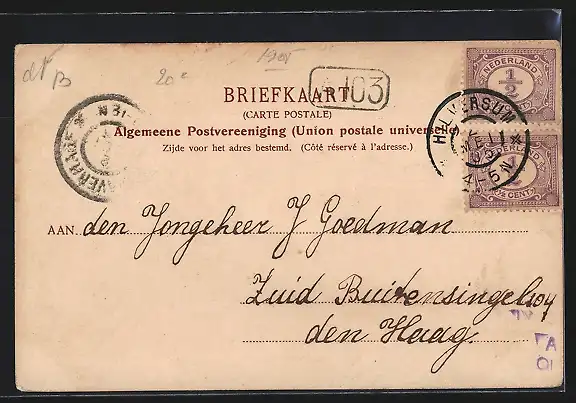 1905
20c
103
BRIEFKAART
(CARTE POSTALE)
Algemeene Postvereeniging (Union postale universelle)
Zijde voor het adres bestemd. (Côté réservé à l'adresse.)
NEDERLAND
1/2
HILVERSUM
4-5 N
½ CENT
'SGRAVENHAGE
AAN den Jongeheer J Goedman
Zuid Buitensingel 204
den Haag.